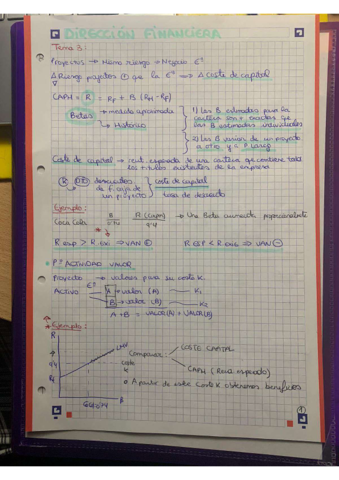 DIRECCIÓN FINANCIERA
Tema 3:
Proyectos → Mismo riesgo → Negocio Eª
Δ Riesgo proyectos ⊕ que la Eª ⟹ Δ Coste de capital
CAPM = R = RF + B (RM - RF)
Betas → método aproximado
→ Histórico
1) Las B estimadas para la cartera son + exactas que las B estimadas individuales
2) Las B varían de un proyecto a otro y a P. largo
Coste de capital → rent. esperada de una cartera que contiene todos los títulos existentes de la empresa
descuentos de f. caja de un proyecto
coste de capital
tasa de descuento
Ejemplo:
B R (CAPM) → Una Beta aumenta proporcionalmente
Coca Cola
R esp > R exi ⟹ VAN ⊕ R esp < R exi ⟹ VAN ⊖
Pº ACTIVIDAD VALOR
Proyecto → valorar para su coste K.
Activo Eª
A → valor (A) K1
B → valor (B) K2
A+B = VALOR(A) + VALOR(B)
Ejemplo:
R
RF
B
Comparar:
COSTE CAPITAL
CAPM (Rend. esperado)
A partir de este Coste K obtenemos beneficios
coste
K